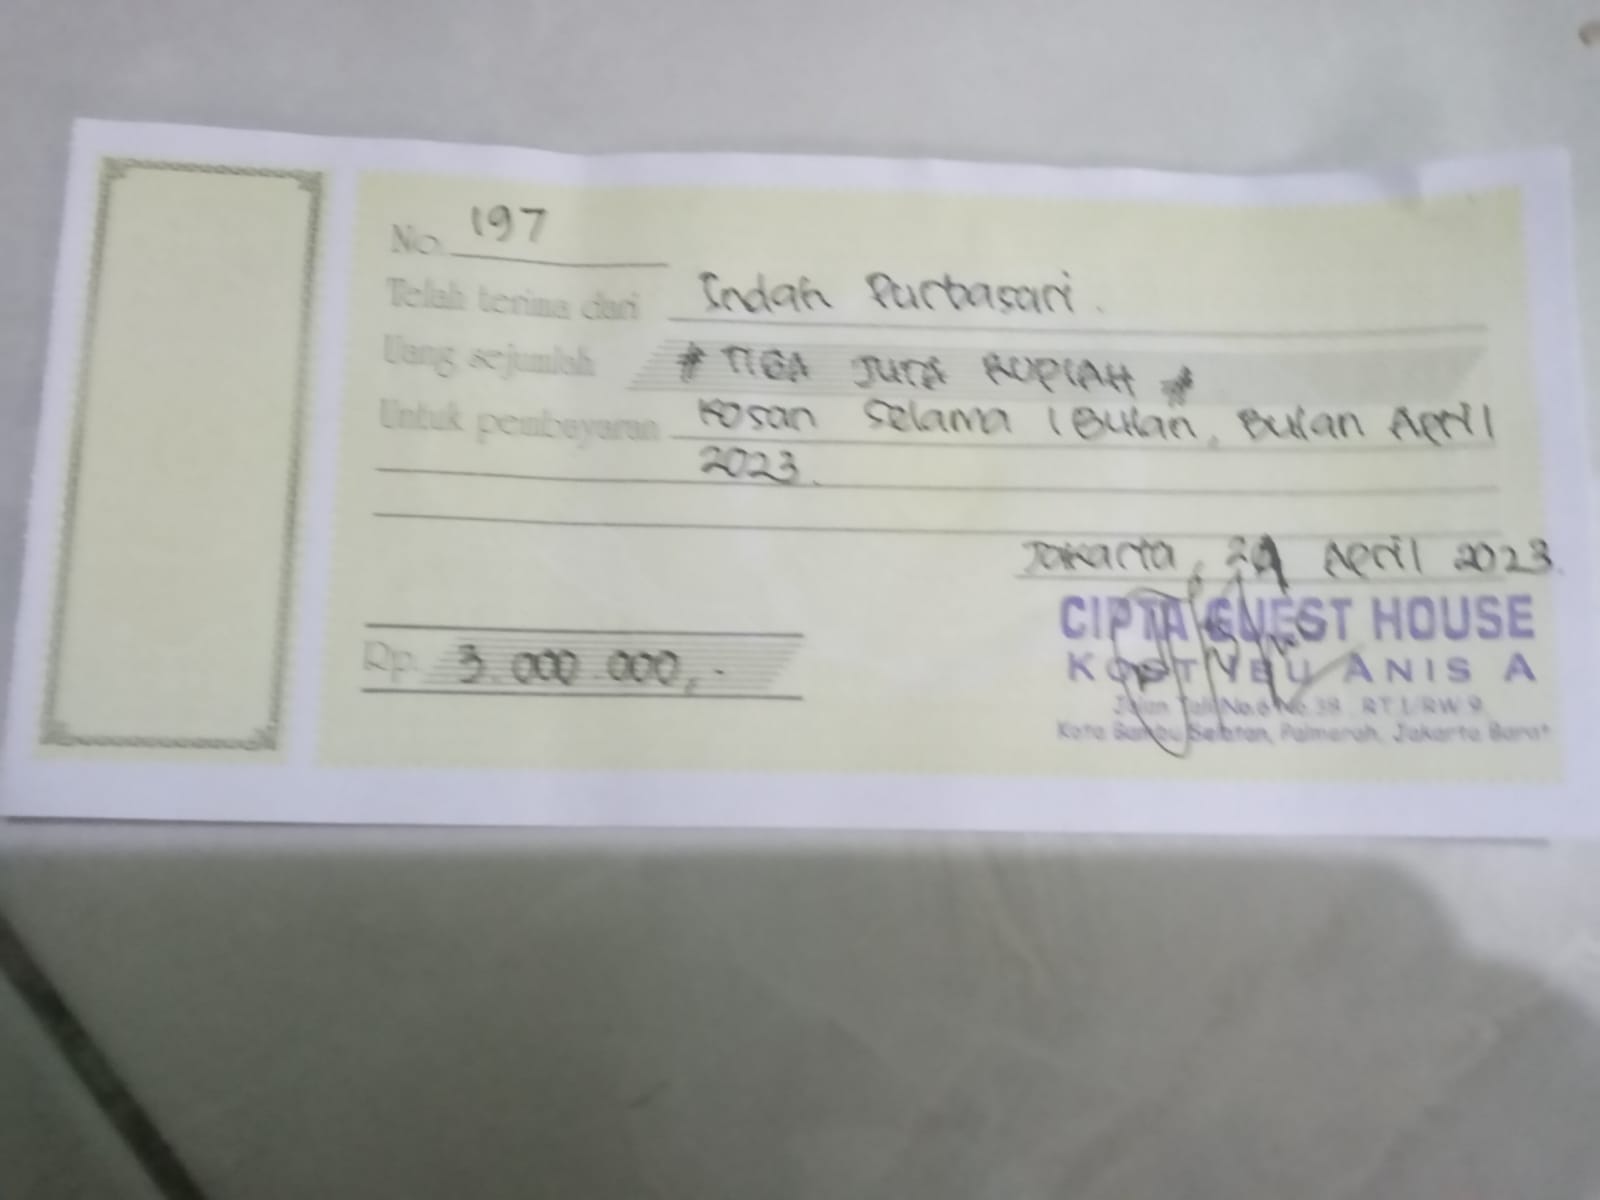 No. 197
Telah terima dari Indah Purbasari.
Uang sejumlah # TIGA JUTA RUPIAH #
Untuk pembayaran Kosan Selama 1 Bulan, Bulan April
2023.
Jakarta, April 2023.
CIPTA GUEST HOUSE
KOST IBU ANIS A
Rp. 3.000.000,-
Jalan No. 38 RT 1/RW 9
Kota Bambu Selatan, Palmerah, Jakarta Barat